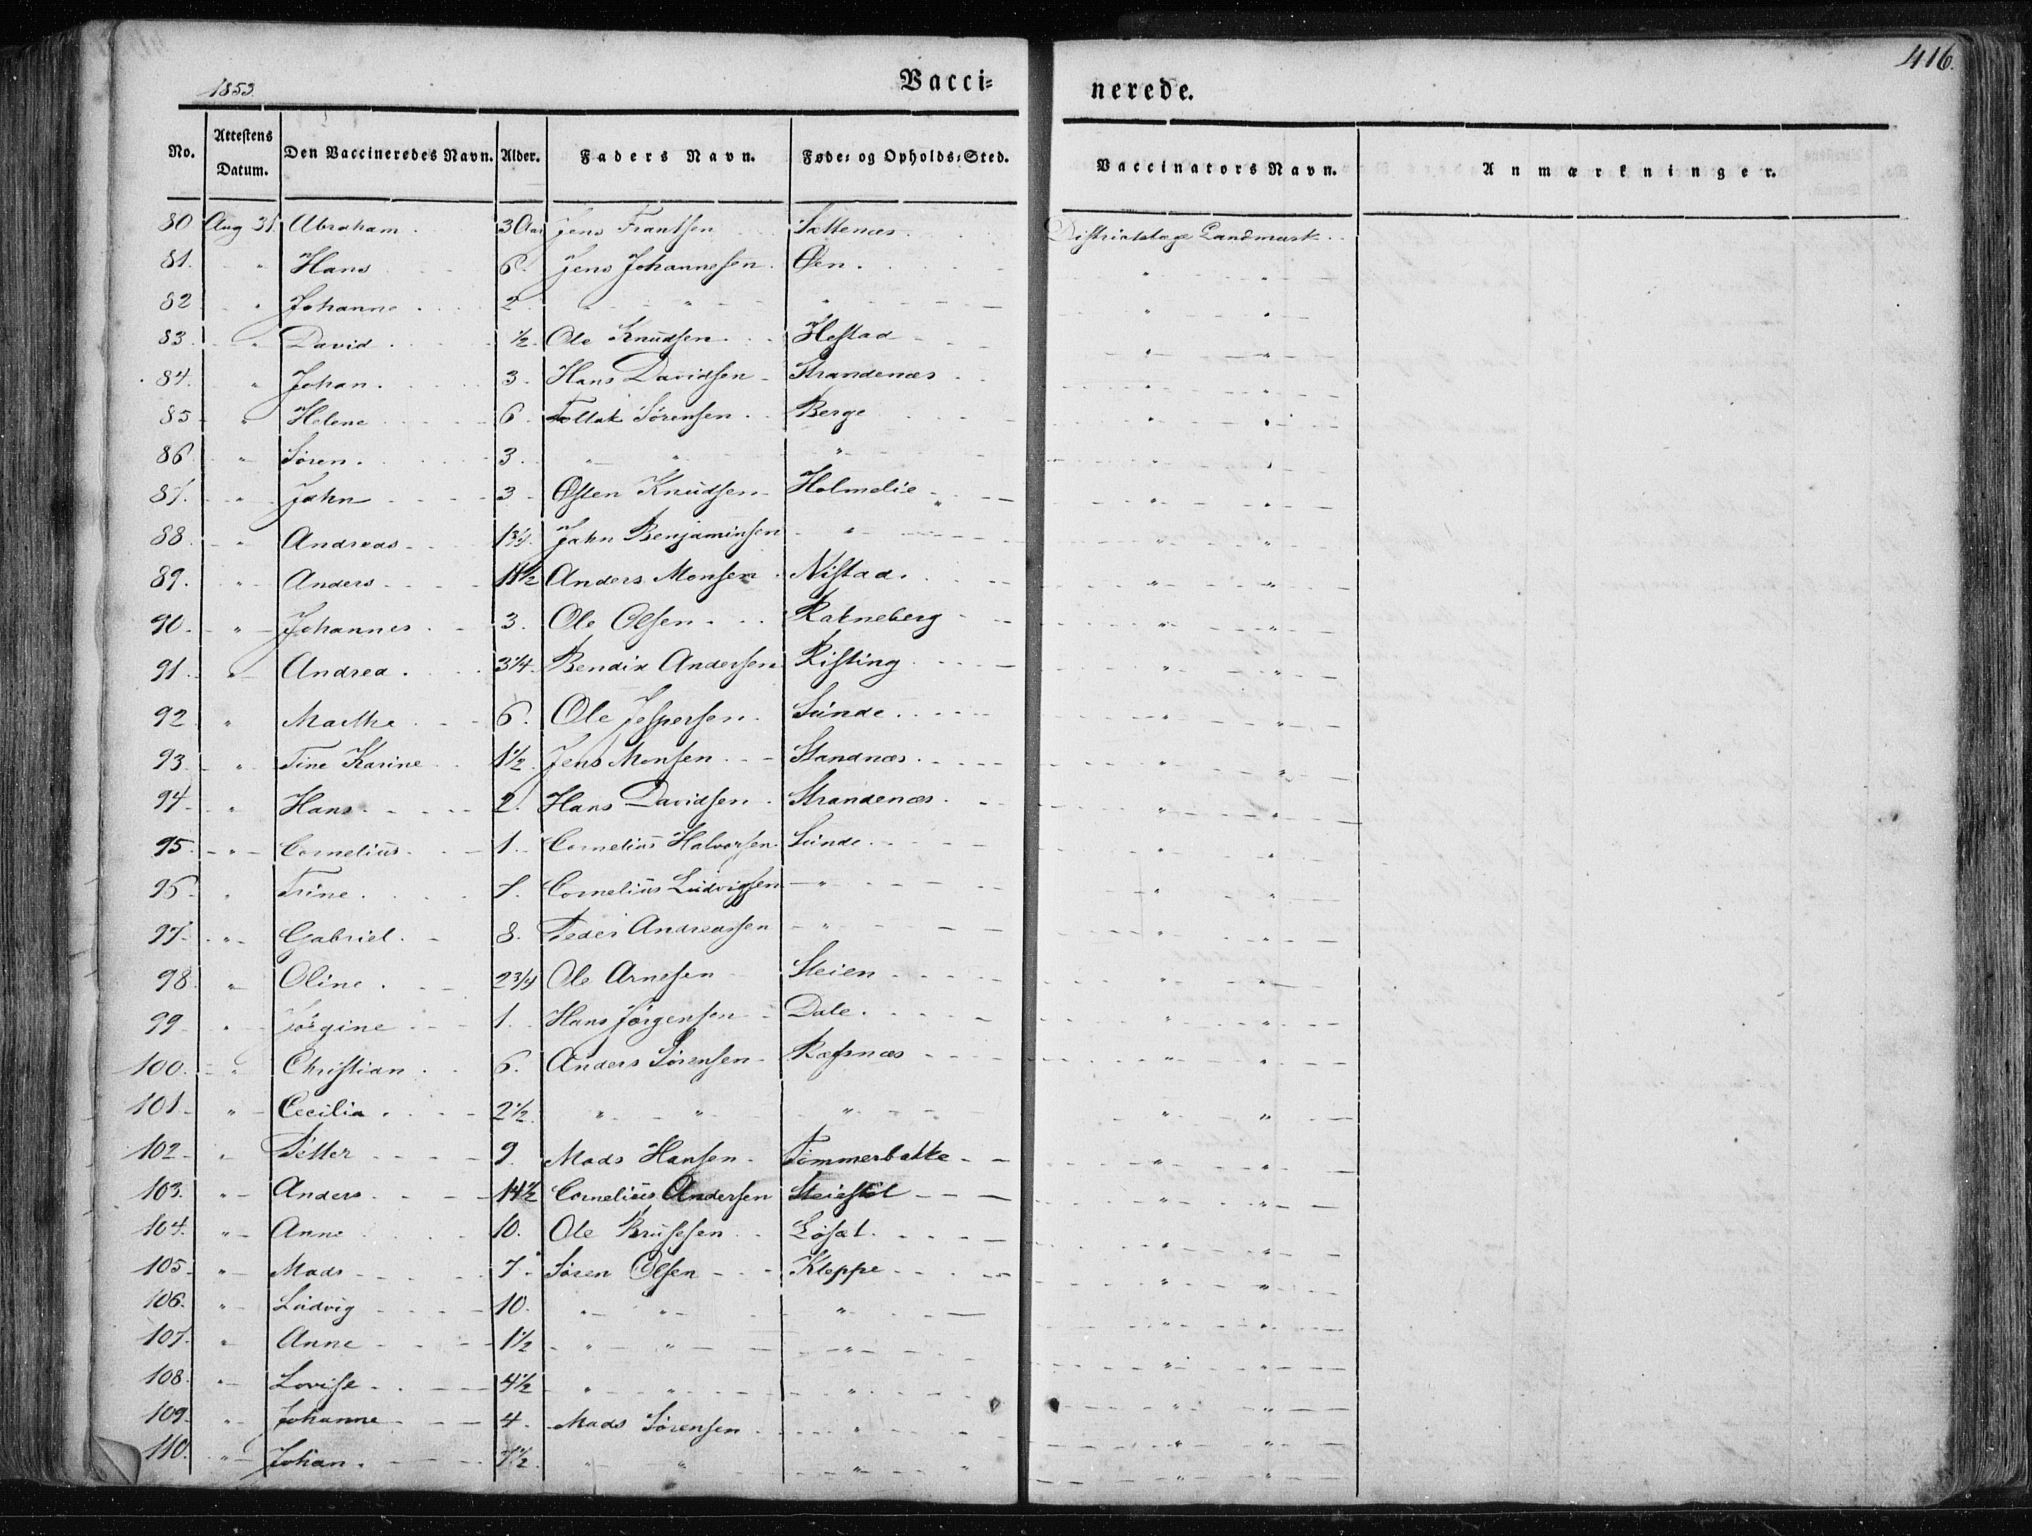 416.
1853.
Vacci=
nerede.
No. Attestens Datum. Den Vaccineredes Navn. Alder. Faders Navn. Føde= og Opholds=Sted. Vaccinators Navn. Anmærkninger.
80 Aug 31. Abraham 3 Aar Jens Frantsen Sættenæs. Districtslæge Landmark.
81. " Hans 6. Jens Johannesen. Øen. " "
82 " Johanne 2 " " " " "
83. " David ½ Ole Knudsen Hestad " "
84. " Johan. 3. Hans Davidsen Strandenæs " "
85 " Helene 6 Tollak Sørensen Berge " "
86 " Søren. 3 " " " " "
87. " Jahn 3 Østen Knudsen Holmelie " "
88. " Andreas 1¾. Jahn Benjaminsen " " "
89. " Anders 1½ Anders Monsen Nistad. " "
90. " Johannes 3. Ole Olsen Rakneberg " "
91. " Andrea 3¼. Bendix Andersen Risting " "
92 " Marthe 6. Ole Jespersen. Sunde " "
93 " Tine Karine 1½ Jens Monsen Standnæs " "
94 " Hans 2. Hans Davidsen Strandenæs " "
95. " Cornelius 1. Cornelius Halvorsen Sunde " "
96 " Trine 1. Cornelius Ludvigsen " " "
97. " Gabriel 8. Peder Andreassen " " "
98 " Oline 2¾ Ole Arnesen Steien " "
99 " Jørgine 1. Hans Jørgensen Dale " "
100. " Christian 6. Anders Sørensen Ræfsnæs " "
101. " Cecilia 2½ " " " " "
102 " Petter 9. Mads Hansen Tømmerbakke " "
103. " Anders 14½ Cornelius Andersen Steiestøl " "
104. " Anne 10. Ole Brusesen Løsæt " "
105 " Mads 7. Søren Olsen Kleppe " "
106. " Ludvig 10. " " " " "
107. " Anne 1½ " " " " "
108. " Lovise 4½ " " " " "
109 " Johanne 4. Mads Sørensen " " "
110. " Johan. 7½. " " " " "